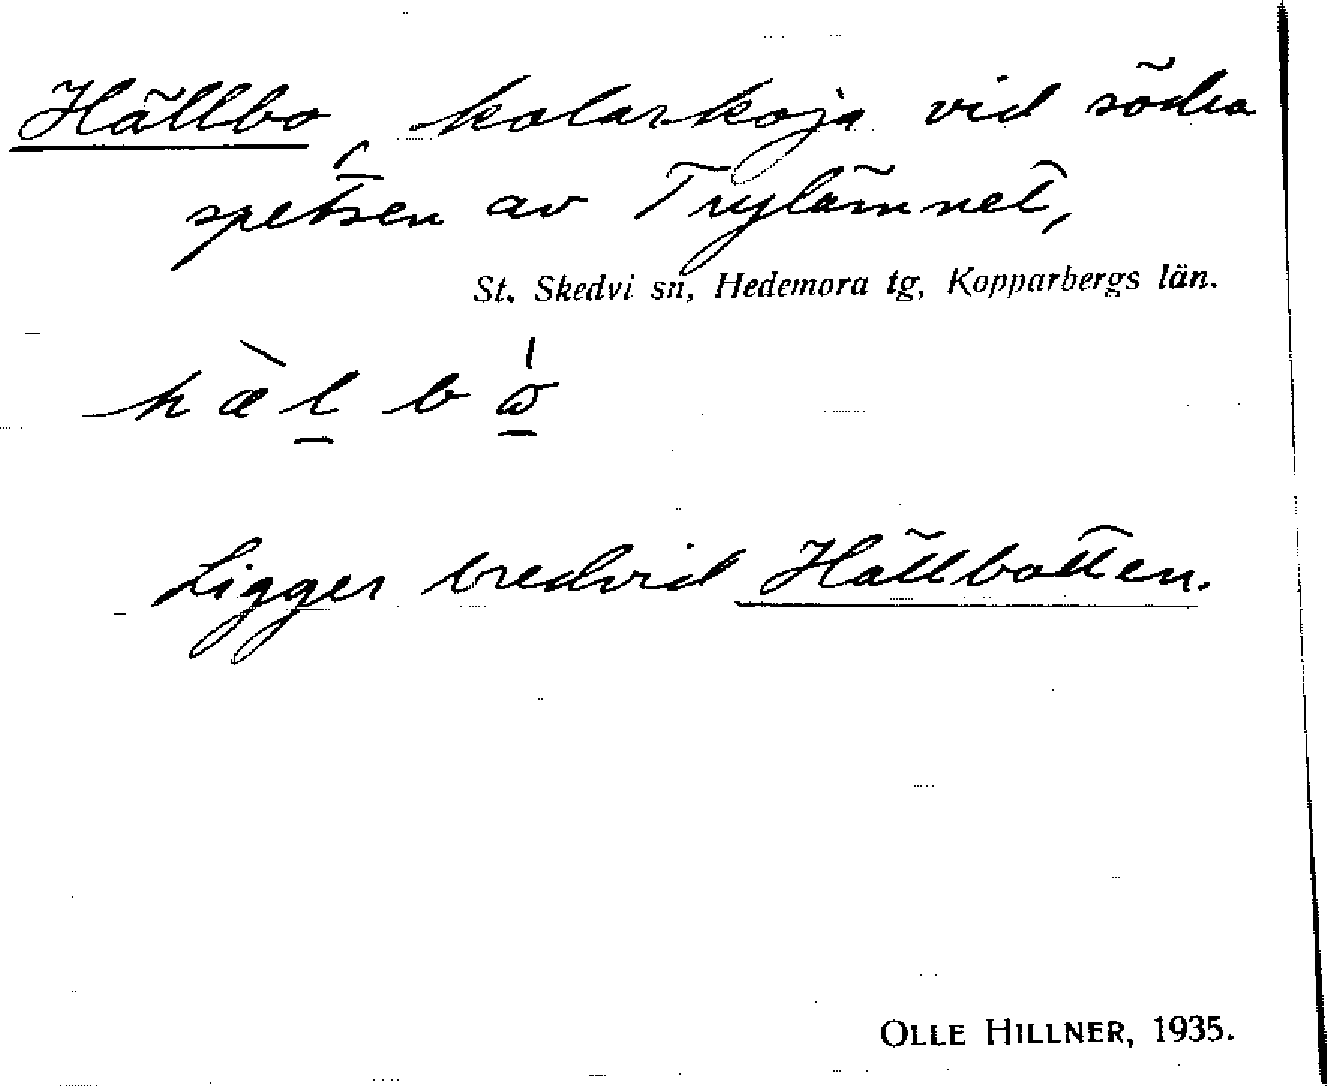 Hällbo, kolarkoja vid södra
spetsen av Trylämnet,
St. Skedvi sn, Hedemora tg, Kopparbergs län.
Ligger bredvid Hällbotten.
OLLE HILLNER, 1935.